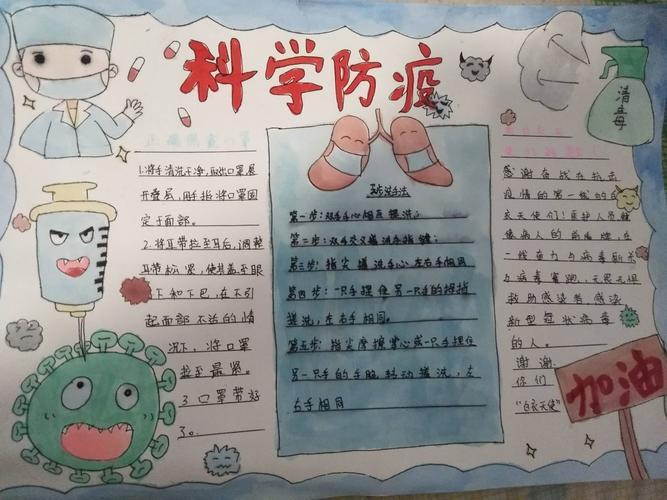 科学防疫
清毒
1.将手清洗干净,取出口罩展
开叠层,用手指将口罩固
定于面部。
2.将耳带拉至耳后,调整
耳带松紧,使其盖至眼
下和下巴,在不引
起面部不适的情
况下,将口罩
拉至最紧。
3口罩带好
了。
洗手法
第一步:双手手心相互搓洗。
第二步:双手交叉搓洗手指缝;
第三步:指尖搓洗手心左右手相同
第四步:一只手握住另一只手的拇指
搓洗,左右手相同。
第五步:指尖摩擦掌心或一只手握住
另一只手的手腕转动搓洗,左
右手相同
感谢奋战在抗击
疫情的第一线的白
衣天使们!医护人员
病人的
一线奋力与病毒
与病毒赛跑
救助感染者感染
新型冠状病毒
的人。
谢谢
你们
“白衣天使”
加油